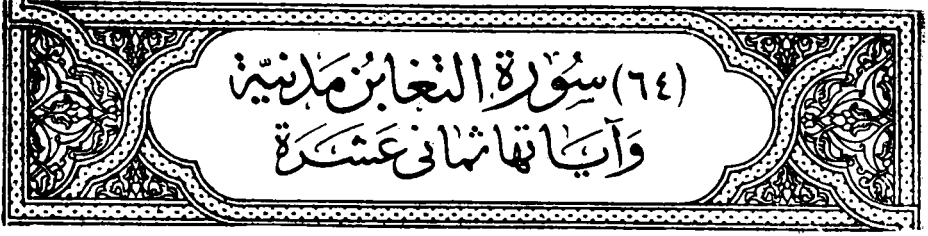 (٦٤) سُورَة التغَابُن مَدَنيّة
وَآيَاتها ثماني عَشَرَة